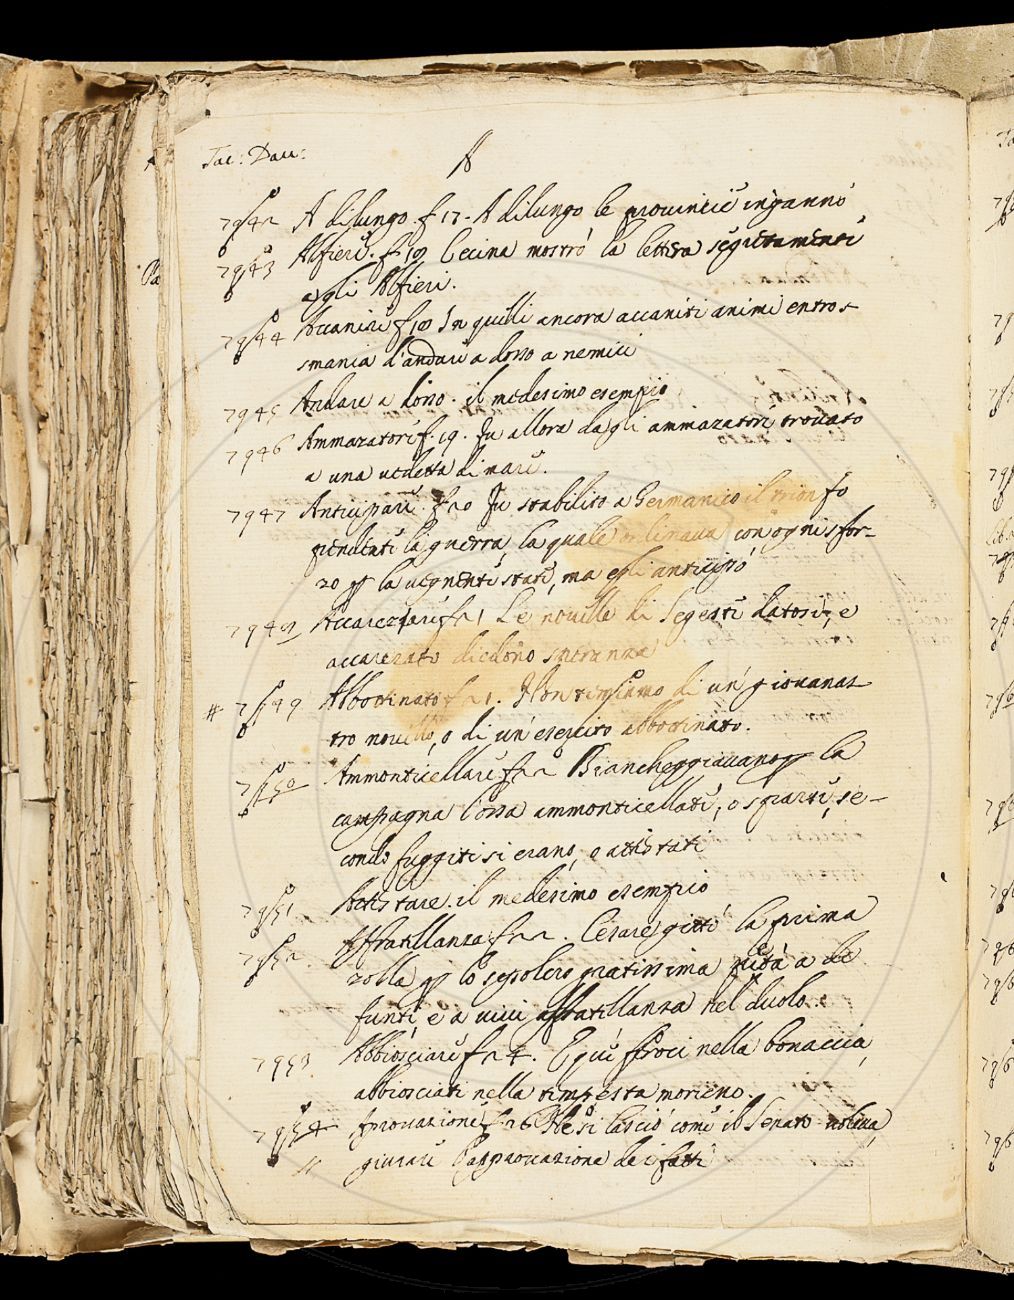 Tac: Dau:
A
7942 A dilungo. f 17. A dilungo le prouincie ingannò
7943 Alfiere. f 19 Cecina mostrò la lettera segretamenti
agli Alfieri.
7944 Accanire f 18 In quelli ancora accaniti animi entro s-
smania d'andare a dosso a nemici
7945 Andare a dosso. il medesimo esempio
7946 Ammazatori f. 19. Fu allora dagli ammazatori trouato
a una uedetta di mare.
7947 Anticipare. f 20 Fu stabilito a Germanico il trionfo
pendenti la guerra, la quale ordinaua con ogni sfor-
zo p la uegnenti stati, ma egli anticipò
7948 Accarezzare f 21 Le nouelle di Segesti datosi, e
accarezzato diedono speranza
# 7949 Abbottinato f 21. Non tenghiamo di un'giouanas-
tro nouello, o di un'esercito abbottinato.
7950 Ammonticellare f 22 Biancheggiauano p la
campagna l'ossa ammonticellati, o sparti, se-
condo fuggiti si erano, o attestati
7951 Attestare. il medesimo esempio
7952 Affratellanza f 22. Cesare gittò la prima
zolla p lo sepolcro gratissima pietà a de
funti, e a uiui affratellanza nel duolo.
7953 Abbiosciare f 24. E qui feroci nella bonaccia,
abbiosciati nella tempesta morieno.
7954 Aprouazione f 26 Ne si lasciò come il Senato uoleua,
giurare l'approuazione de i fatti